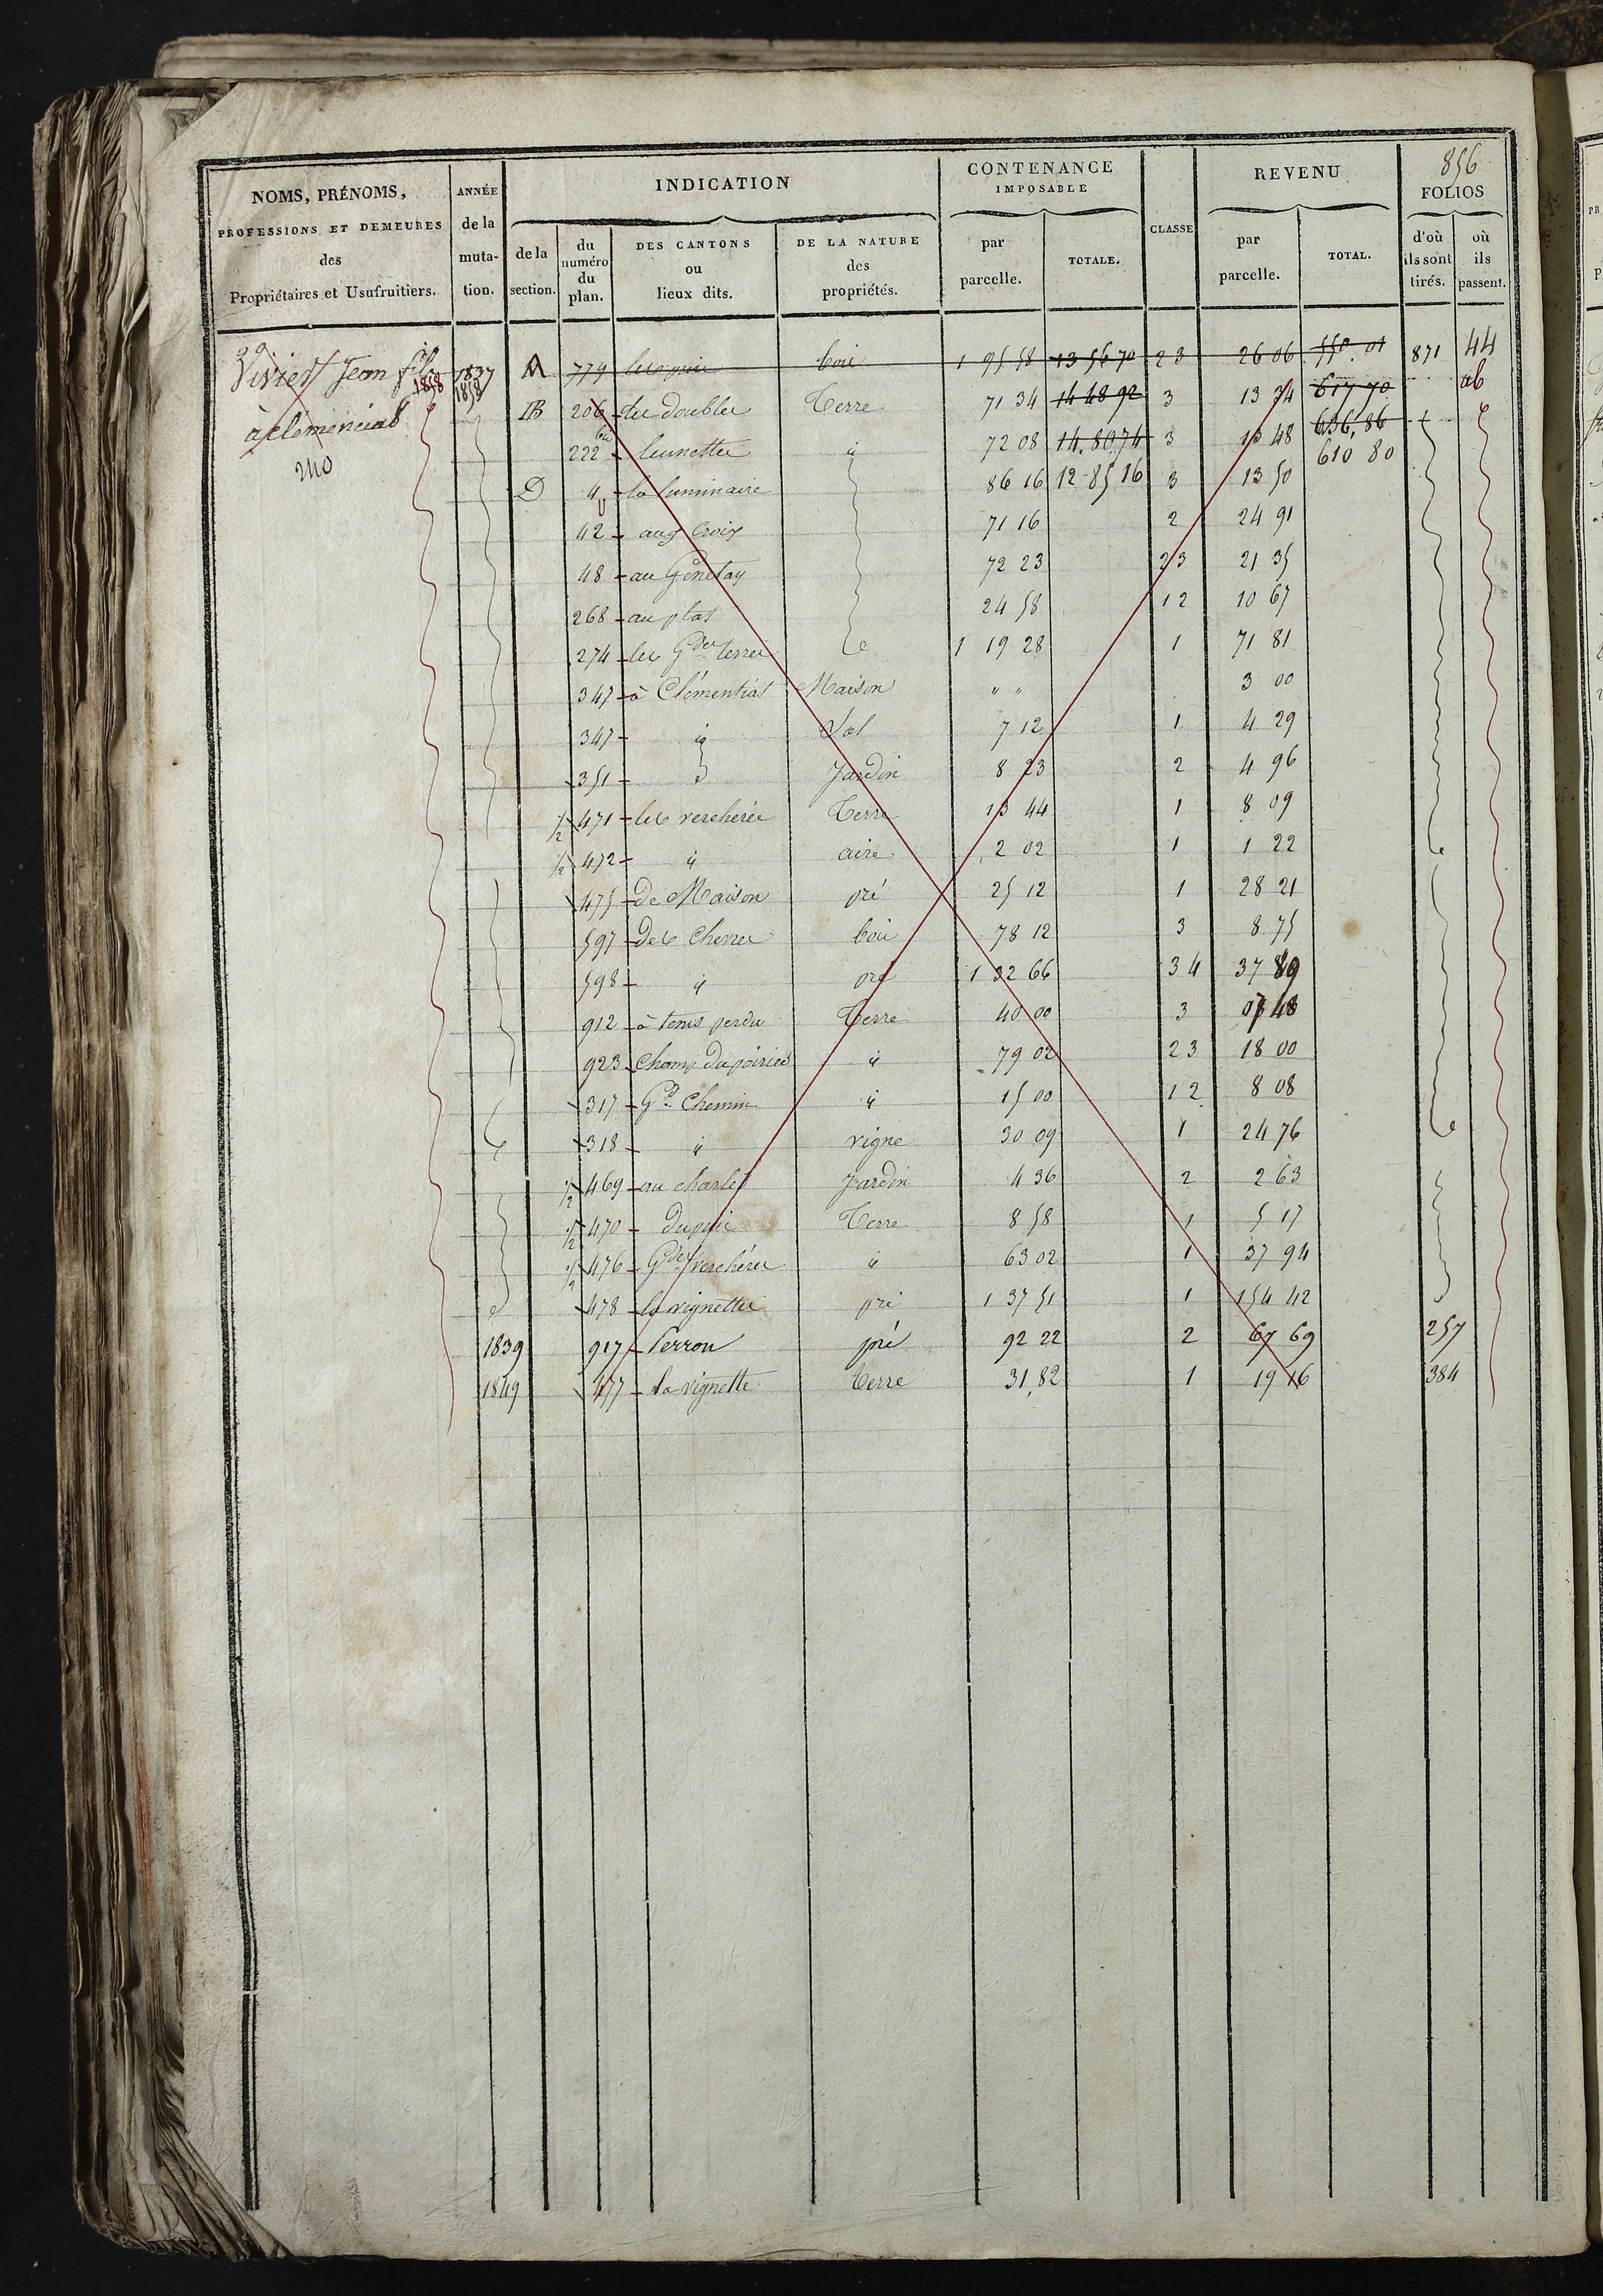 856
NOMS, PRÉNOMS, PROFESSIONS ET DEMEURES des Propriétaires et Usufruitiers.
ANNÉE de la muta- tion.
INDICATION
de la section.
du numéro du plan.
DES CANTONS ou lieux dits.
DE LA NATURE des propriétés.
CONTENANCE IMPOSABLE
par parcelle.
TOTALE.
CLASSE
REVENU
par parcelle.
TOTAL.
FOLIOS
d'où ils sont tirés.
où ils passent.
Vivier Jean fils
1858
à clémenciat
240
1837 A 779 bois 1 95 58 13 56 70 23 26 06 550. 01 871 44
1858 B 206 les doubles Terre 71 34 14 48 92 3 13 34 617 70 ab
222 bis lunettes id 72 08 14.80.74 3 13 48 636,86
610 80
D 4 la luminaire 86 16 12 85 16 3 13 50
42 aux Croix 71 16 2 24 91
48 au Genetay 72 23 23 21 35
268 au plat 24 58 12 10 67
274 les Gdes terres 1 19 28 1 71 81
347 à Clémentiat Maison " " 3 00
347 id Sol 7 12 1 4 29
351 Jardin 8 23 2 4 96
1/2 471 les verchères Terre 13 44 1 8 09
1/2 472 id aire 2 02 1 1 22
475 de Maison pré 25 12 1 28 21
597 des Chênes bois 78 12 3 8.75
598 id pré 1 32 66 34 37 89
912 à tems perdu Terre 40 00 3 07 48
923 Champ du poirier id 79 02 23 18 00
317 Gd Chemin id 15 00 12 8 08
318 id vigne 30 09 1 24 76
1/2 469 au charles Jardin 4 36 2 2 63
1/2 470 Dupuis Terre 8 58 1 5 17
1/2 476 Gdes verchères id 63 02 1 37 94
478 la vignettes pré 1 37 51 1 154 42
1839 917 Perron pré 92 22 2 67 69 257
1849 477 la vignette terre 31,82 1 19 16 384